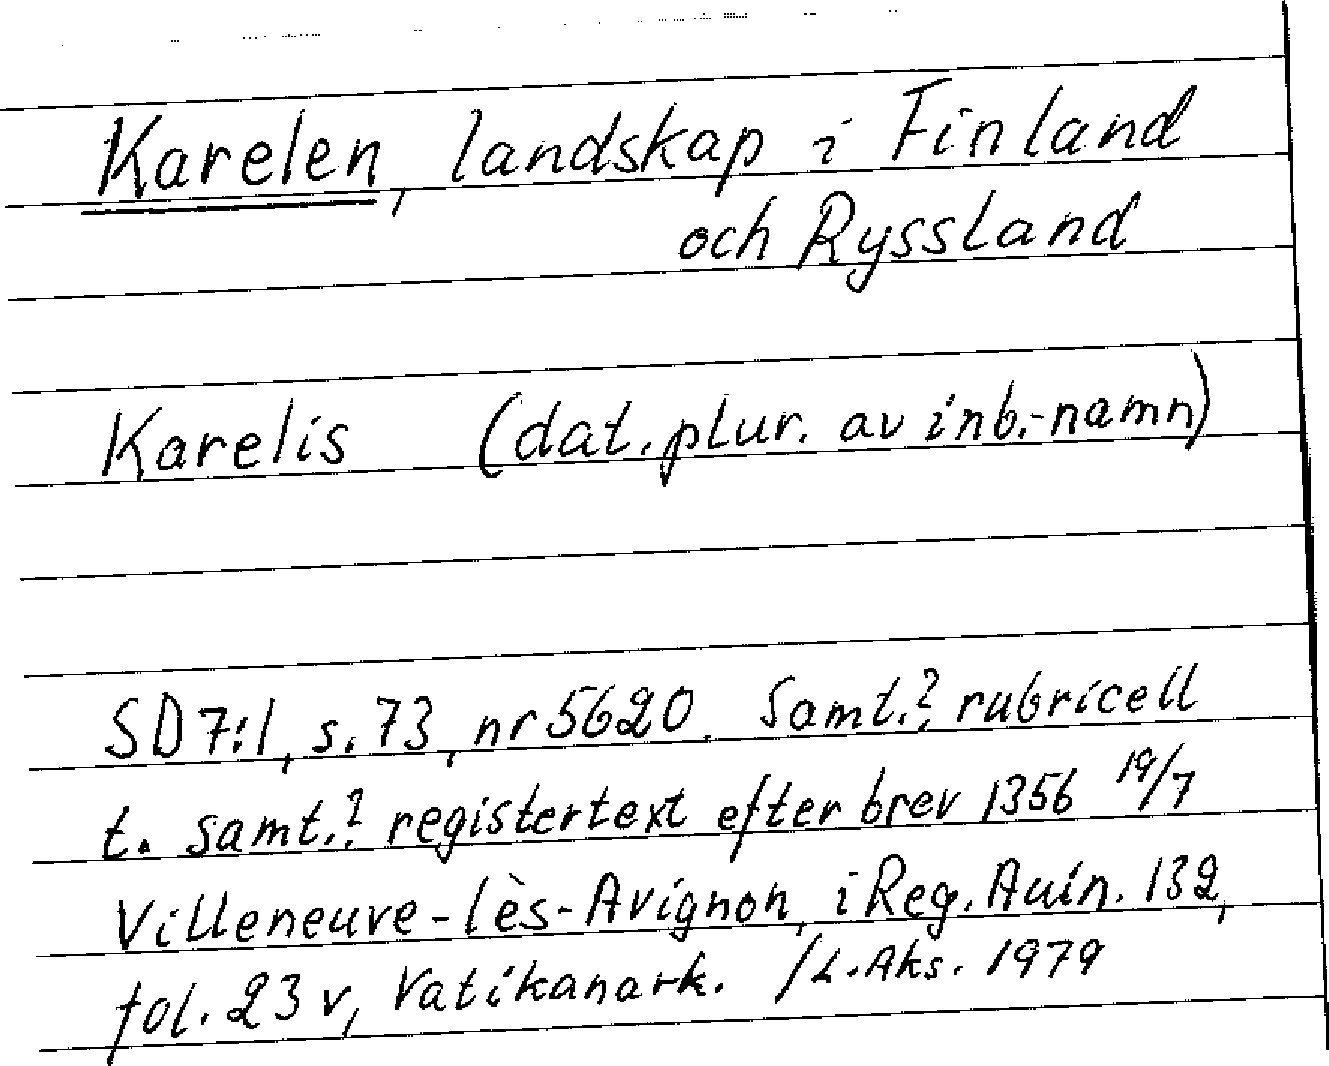 Karelen, landskap i Finland
och Ryssland
Karelis (dat. plur. av inb.-namn)
SD 7:1, s. 73, nr 5620. Samt.?, rubricell
t. samt.? registertext efter brev 1356 19/7
Villeneuve-lès-Avignon, i Reg. Auin. 132,
fol. 23 v, Vatikanark. /L. Aks. 1979